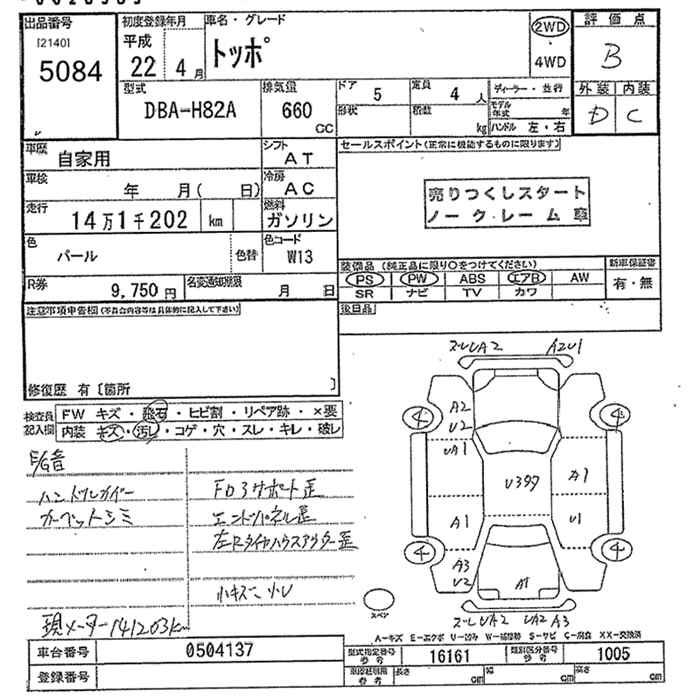 出品番号
[2140]
5084
初度登録年月
平成
22 年 4 月
車名・グレード
トッポ
2WD
・
4WD
評価点
B
外装 内装
D C
型式
DBA-H82A
排気量
660
CC
ドア 5
形状
定員 4 人
積数 kg
ディーラー・並行
モデル年式 年
ハンドル 左・右
車歴
自家用
シフト
AT
車検
年 月( 日)
冷房
AC
走行
14万1千202 km
燃料
ガソリン
色
パール
色替
色コード
W13
R券
9,750 円
名変通知期限
月 日
セールスポイント(正常に機能するものに限ります)
売りつくしスタート
ノークレーム車
装備品(純正品に限り○をつけてください)
PS PW ABS エアB AW
SR ナビ TV カワ
新車保証書
有・無
後日品
注意事項申告欄(不具合内容等は具体的に記入して下さい)
修復歴 有〔箇所 〕
検査員記入欄
FW キズ・飛石・ヒビ割・リペア跡・×要
内装 キズ・汚し・コゲ・穴・スレ・キレ・破レ
ハンドルカバー
カーペットシミ
FD3サポート歪
エンドパネル歪
左Rタイヤハウスアウター歪
小キズ 小U
現メーター141203km
A2U1
A2
U2
UA1
U397
A1
A1
U1
A3
U2
A1
UA2 A3
4
4
4
4
スペア
A-キズ E-エクボ U-凹み W-補修跡 S-サビ C-腐食 XX-交換済
車台番号 0504137
登録番号
型式指定番号
参考
16161
類別区分番号
参考
1005
長さ cm
幅 cm
高さ cm